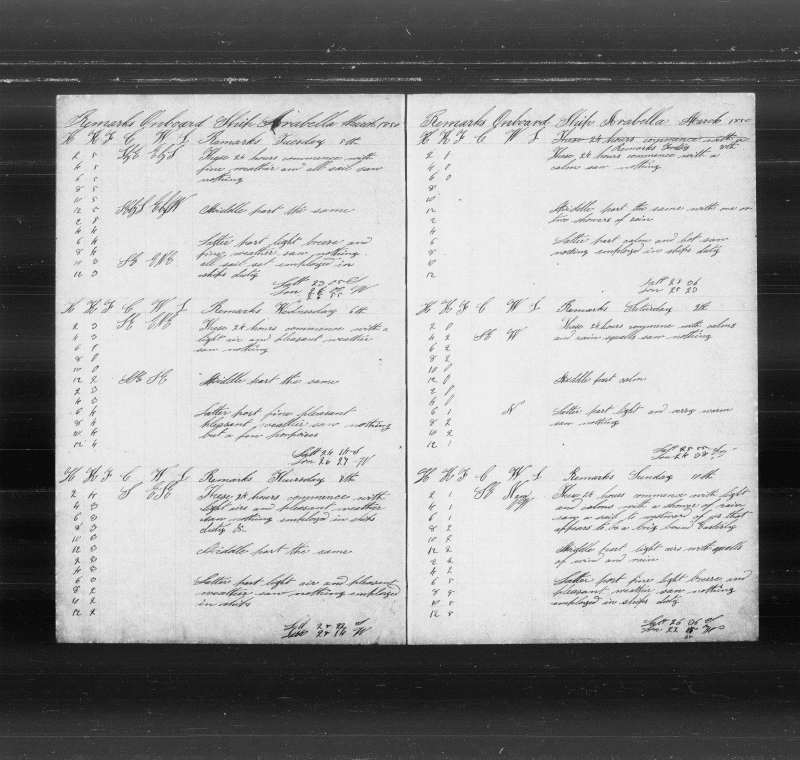 Remarks Onboard Ship Arabella March 1850
H K F C W L Remarks Tuesday 5th
2 5 These 24 hours commence with
4 5 fine weather and all sail saw
6 5 nothing
8 5
10 5
12 5 Middle part the same
2 5
4 4
6 4 Latter part light breese and
8 4 fine weather saw nothing
10 3 SE ENE all sail set employed in
12 3 ships duty
Latt 23
Lon
H K F C W L Remarks Wednesday 6th
2 3 SE ENE These 24 hours commence with a
4 3 light air and pleasant weather
6 1 saw nothing
8 0
10 0
12 2 Middle part the same
2 3
4 3
6 4 Latter part fine pleasant
8 4 pleasant weather saw nothing
10 4 but a few porpoises
12 4
Latt 24
Lon 26 27 W
H K F C W L Remarks Thursday 7th
2 4 S ESE These 24 hours commence with
4 3 light airs and pleasant weather
6 3 saw nothing employed in ships
8 3 duty &c
10 3
12 3 Middle part the same
2 3
4 2
6 3 Latter part light air and pleasant
8 2 weather saw nothing employed
10 2 in ships
12 2
Remarks Onboard Ship Arabella March 1850
H K F C W L These 24 hours commence with a
Remarks Friday 8th
2 0 These 24 hours commence with a
4 0 calm saw nothing
6 0
8
10
12 Middle part the same with one or
2 two showers of rain
4
6 Latter part calm and hot saw
8 nothing employed in ships duty
10
12
Latt 25 06
Lon 25 23
H K F C W L Remarks Saturday 9th
2 0 These 24 hours commence with calms
4 2 SE W and rain squalls saw nothing
6 2
8 2
10 0
12 0 Middle part calm
2 0
4 0
6 1 N Latter part light and very warm
8 2 saw nothing
10 2
12 1
Latt 25
Lon 24
H K F C W L Remarks Sunday 10th
2 1 SE These 24 hours commence with light
4 1 and calms with a shower of rain
6 1 saw a sail to westward of us that
8 2 appears to be a brig bound Easterly
10 2
12 2 Middle part light airs with squalls
2 2 of wind and rain
4 2
6 5 Latter part fine light breese and
8 5 pleasant weather saw nothing
10 5 employed in ships duty
12 5
Latt 26 06
Lon 22